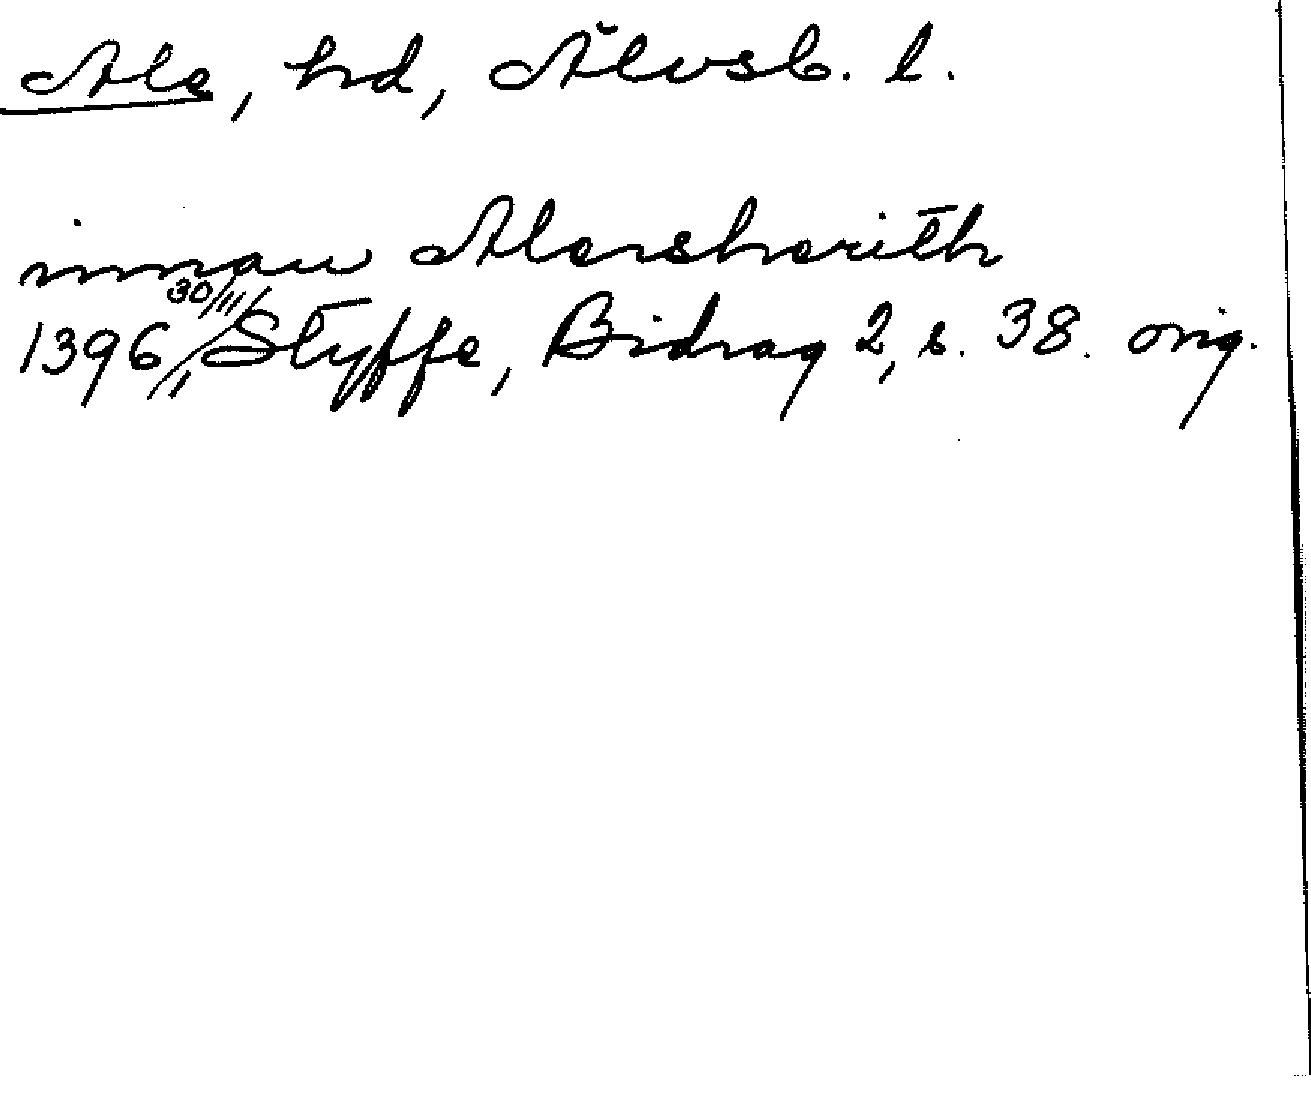 Ale, hd, Älvsb. l.
innan Alersherith
1396 30/11, Styffe, Bidrag 2, s. 38. orig.